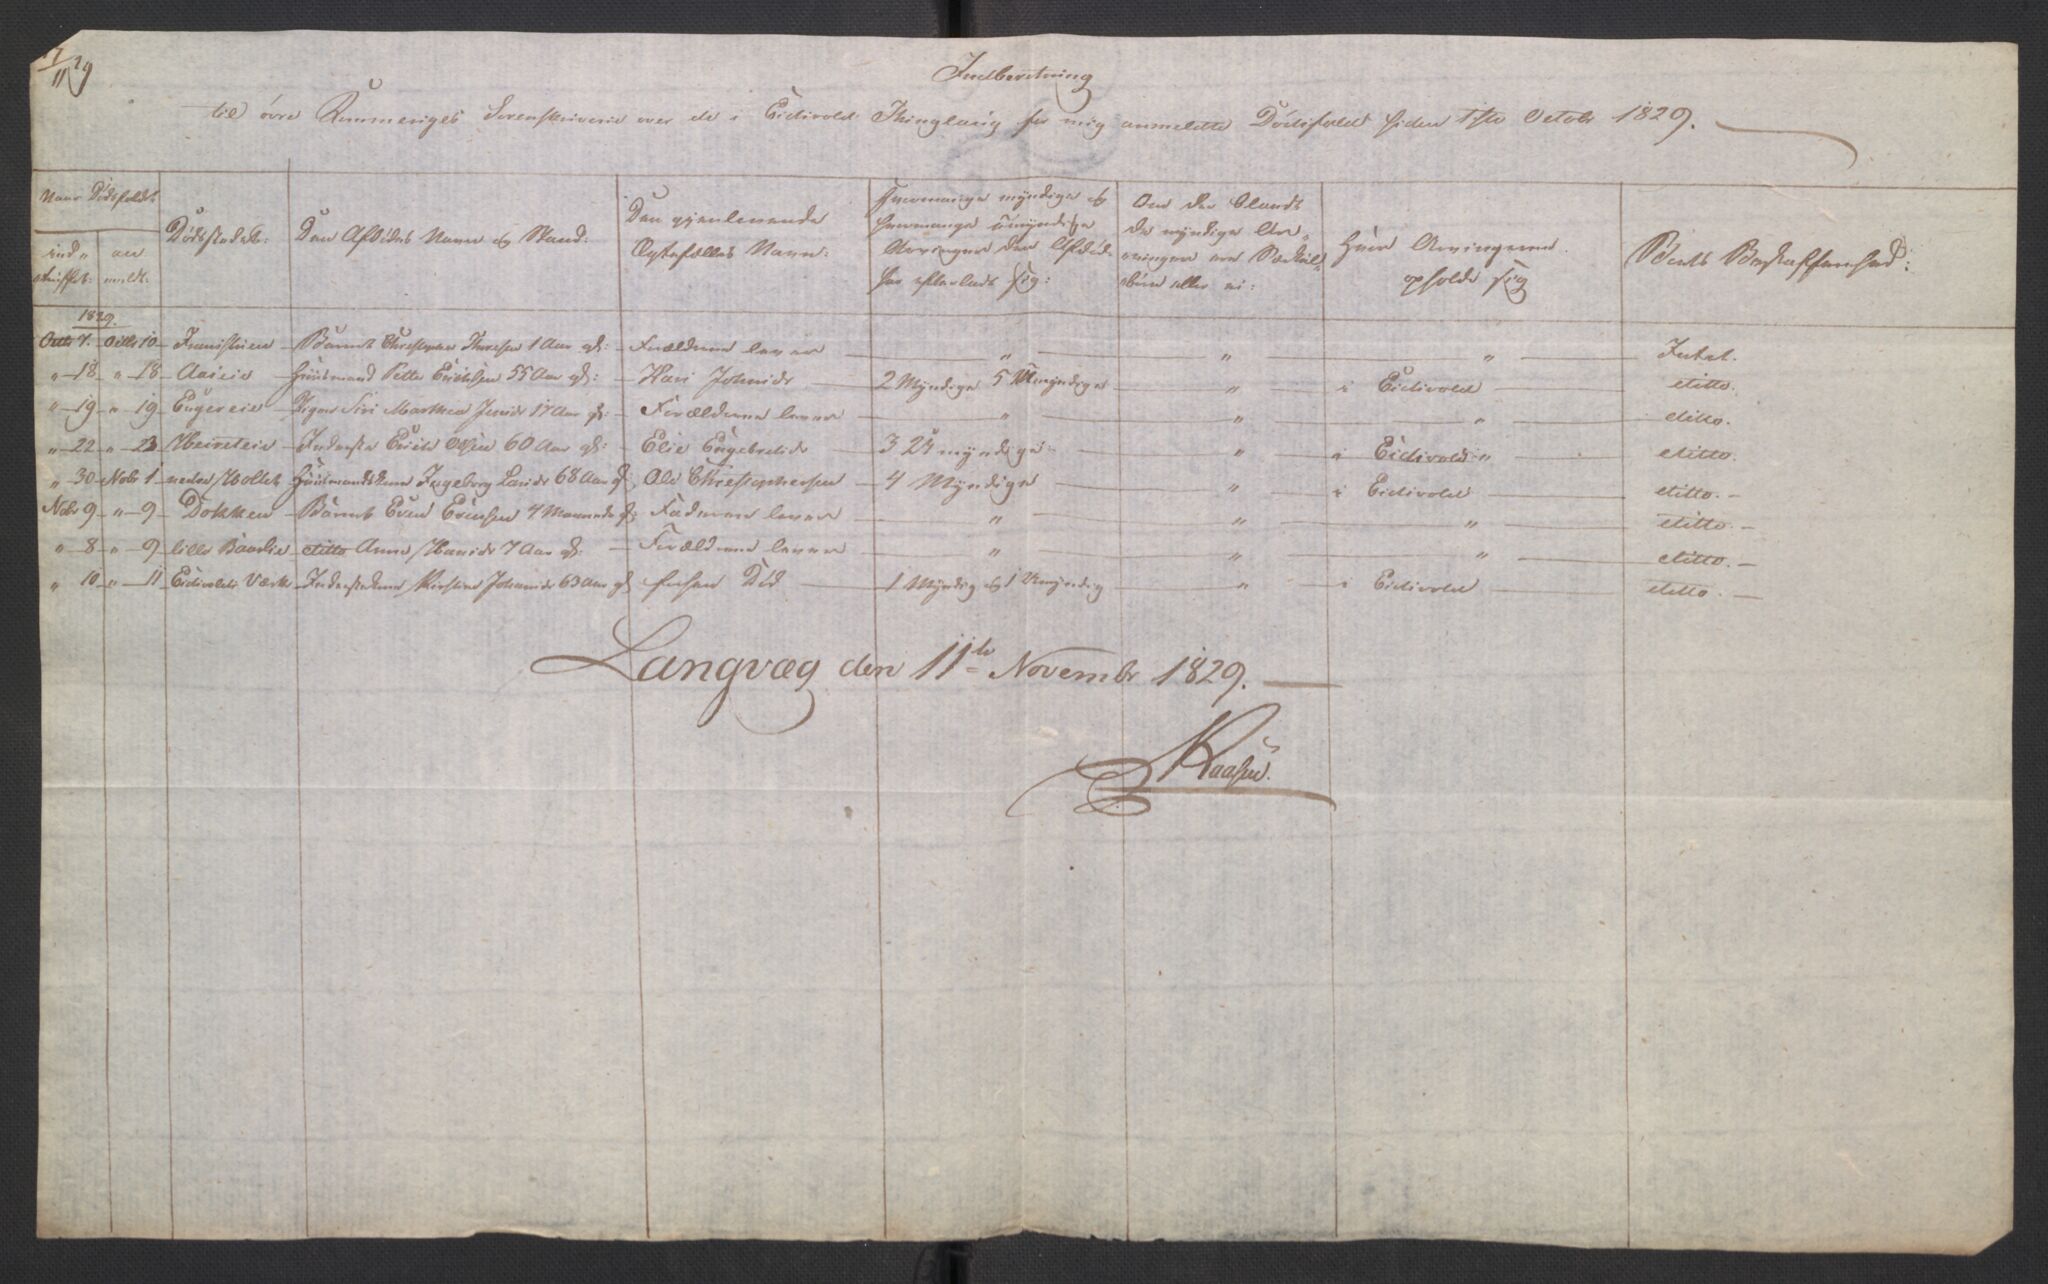 17/11 29
Indberetning
til övre Rommeriges Sorenskriverie over de i Eidsvold Thinglaug for mig anmeldte Dödsfald siden 1ste Octobr 1829.
Naar Dödsfaldet
ind- truffet: an meldt:
Dödsstedet:
Den Afdödes Navn og Stand:
Den gjenlevende
Ægtefælles Navn:
Hvormange myndige og
hvormange umyndige
Arvinger den Afdöde
har efterladt sig:
Om der blandt
de myndige Ar-
vinger ere
eller ei:
Hvor Arvingerne
opholde sig
Boets Beskaffenhed:
1829.
Octbr 7. Octbr 10 Barnet Christopher 1 Aar gl: Forældrene lever " " " Intet.
" 18 " 18 Huusmand Petter Erichsen 55 Aar gl: Kari 2 Myndige 5 Umyndige " i Eidsvold ditto.
" 19 " 19 Pigen Siri Marthea 17 Aar gl: Forældrene lever " " " ditto.
" 22 " 23 Inderste Erich Olsen 60 Aar gl: Elie Engebretsdr 3 Umyndige: " i Eidsvold " ditto.
" 30 Nobr 1 nedre Huusmandskone Ingeborg Larsdr 68 Aar gl: Ole Christophersen 4 Myndige " i Eidsvold ditto.
Nobr 9 " 9 Dokken Barnet Even Evensen 4 Maaneder gl: lever " " " ditto.
" 8 " 9 lille ditto Anne Hansdr 7 Aar gl: Forældrene lever " " " ditto.
" 10 " 11 Eidsvolds Værk Inderstekone Kirstine Johansdr 63 Aar gl: forhen Död 1 Myndig og 1 Umyndig " i Eidsvold ditto.
Langvæg den 11te Novembr 1829.